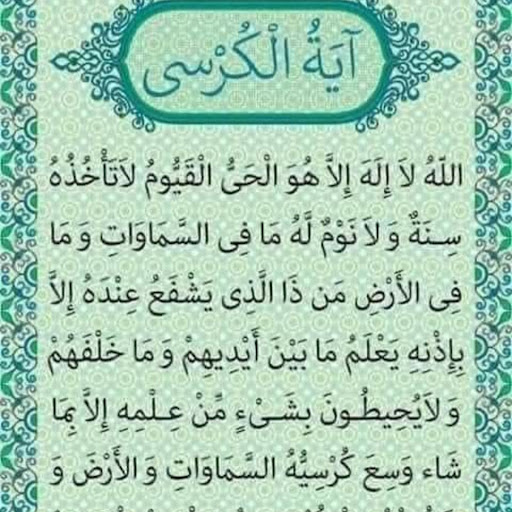 آيَةُ الْكُرْسى
اللّهُ لاَ إِلَهَ إِلاَّ هُوَ الْحَىُّ الْقَيُّومُ لاَتَأْخُذُهُ
سِـنَةٌ وَ لاَ نَوْمٌ لَّهُ مَا فِى السَّمَاوَاتِ وَ مَا
فِى الأَرْضِ مَن ذَا الَّذِى يَشْفَعُ عِنْدَهُ إِلاَّ
بِإِذْنِهِ يَعْلَمُ مَا بَيْنَ أَيْدِيهِمْ وَ مَا خَلْفَهُمْ
وَ لاَيُحِيطُـونَ بِشَـىْءٍ مِّنْ عِـلْمِهِ إِلاَّ بِمَا
شَاء وَسِعَ كُرْسِيُّهُ السَّمَاوَاتِ وَ الأَرْضَ وَ